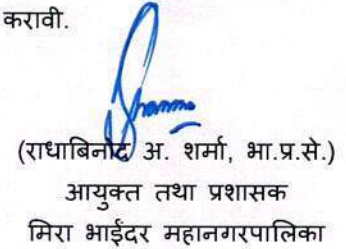 करावी.
(राधाबिनोद अ. शर्मा, भा.प्र.से.)
आयुक्त तथा प्रशासक
मिरा भाईंदर महानगरपालिका